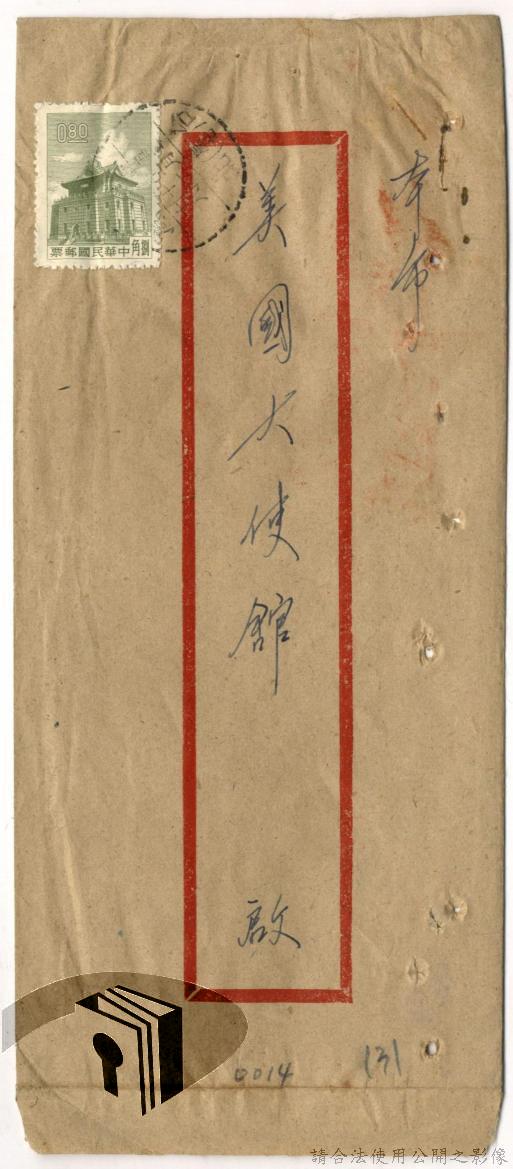 本市
美國大使館 啟
0.80
票郵國民華中
角捌
0014
(3)
請合法使用公開之影像